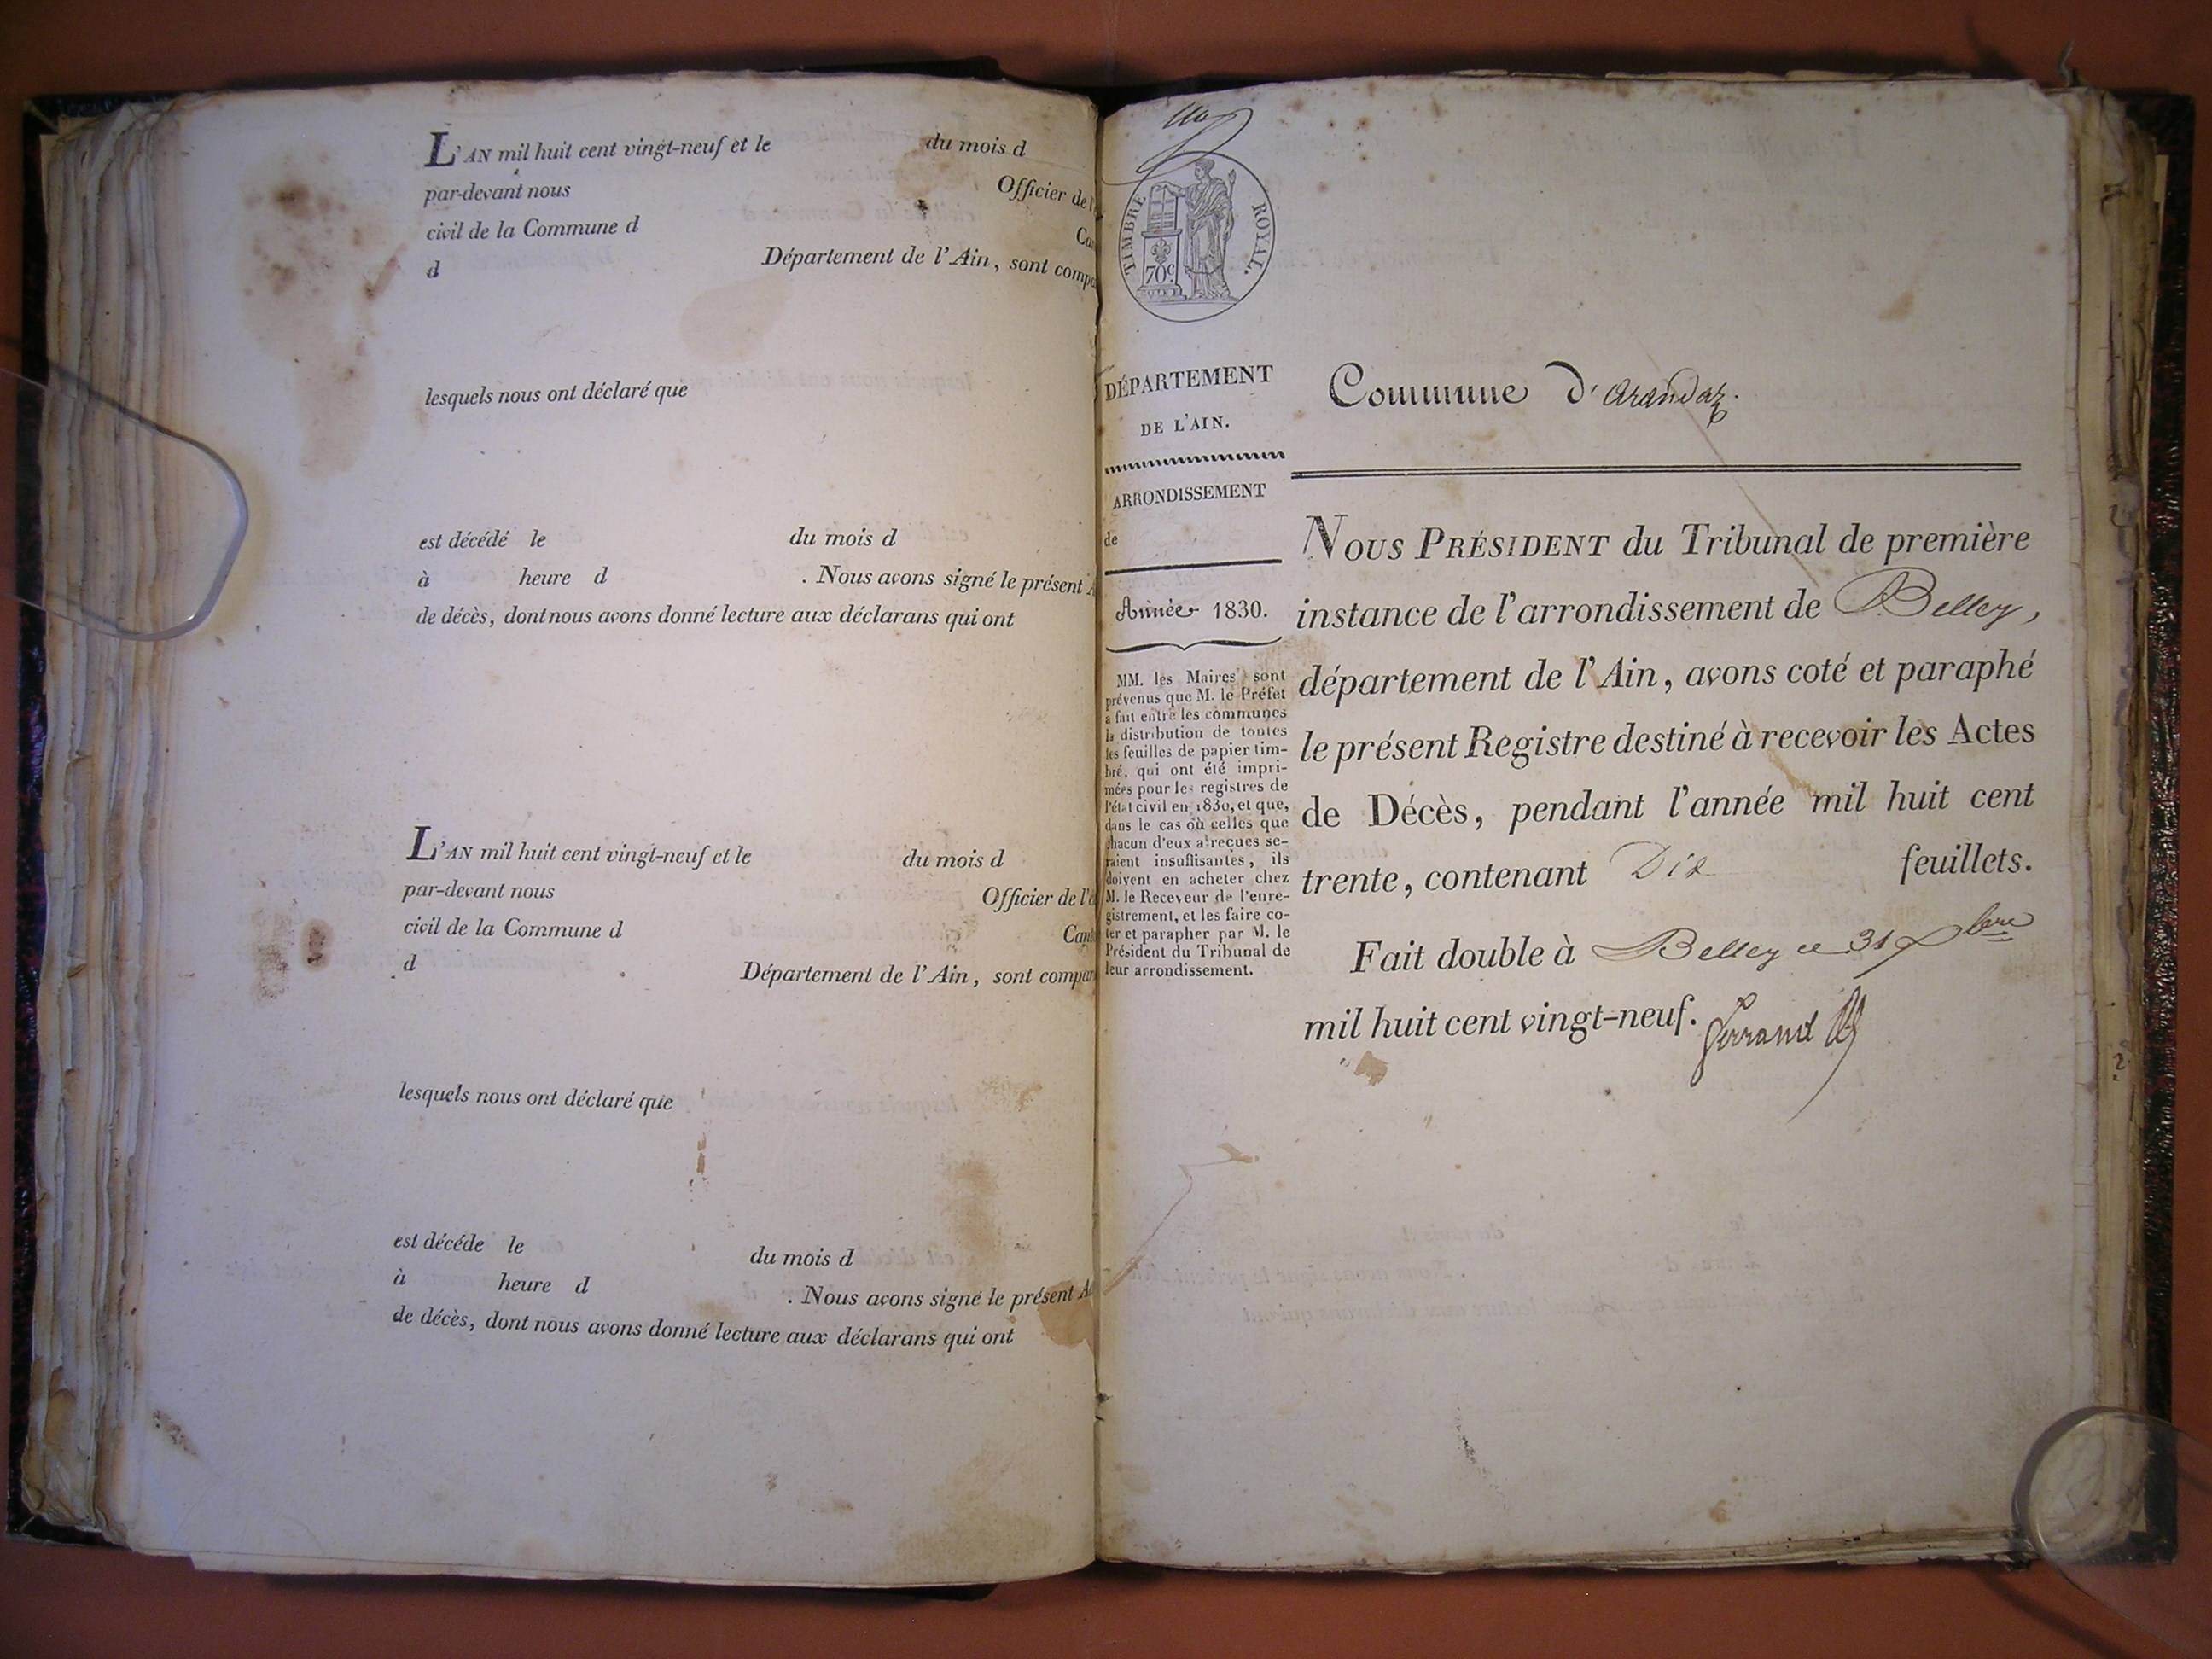 L'AN mil huit cent vingt-neuf et le du mois d
par-devant nous Officier de l'
civil de la Commune d Can
d Département de l'Ain, sont compa
lesquels nous ont déclaré que
est décédé le du mois d
à heure d . Nous avons signé le présent A
de décès, dont nous avons donné lecture aux déclarans qui ont
L'AN mil huit cent vingt-neuf et le du mois d
par-devant nous Officier de l'é
civil de la Commune d Cant
d Département de l'Ain, sont compar
lesquels nous ont déclaré que
est décéde le du mois d
à heure d . Nous avons signé le présent Ac
de décès, dont nous avons donné lecture aux déclarans qui ont
TIMBRE ROYAL.
70c.
DÉPARTEMENT
DE L'AIN.
ARRONDISSEMENT
de
Année 1830.
MM. les Maires sont
prévenus que M. le Préfet
a fait entre les communes
la distribution de toutes
les feuilles de papier tim-
bré, qui ont été impri-
mées pour les registres de
l'état civil en 1830, et que,
dans le cas où celles que
chacun d'eux a reçues se-
raient insuffisantes, ils
doivent en acheter chez
M. le Receveur de l'enre-
gistrement, et les faire co-
ter et parapher par M. le
Président du Tribunal de
leur arrondissement.
Commune d'arandaz.
NOUS PRÉSIDENT du Tribunal de première
instance de l'arrondissement de Belley,
département de l'Ain, avons coté et paraphé
le présent Registre destiné à recevoir les Actes
de Décès, pendant l'année mil huit cent
trente, contenant Dix feuillets.
Fait double à Belley ce 31 xbre
mil huit cent vingt-neuf. ferrand